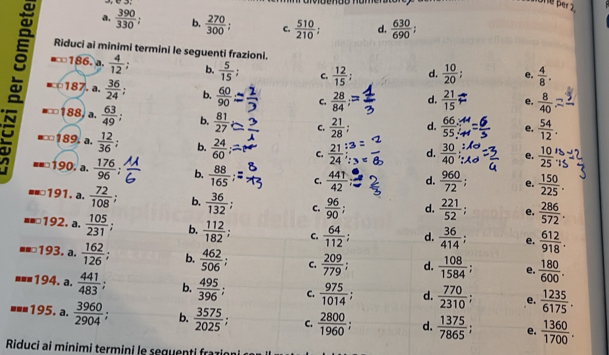 a. 390/330; b. 270/300; c. 510/210; d. 630/690;
Riduci ai minimi termini le seguenti frazioni.
186. a. 4/12; b. 5/15; c. 12/15; d. 10/20; e. 4/8.
187. a. 36/24; b. 60/90; = 2/3 c. 28/84; = 1/3 d. 21/15; = e. 8/40.
188. a. 63/49; b. 81/27; = 3/1 c. 21/28; d. 66/55; = 6/5 e. 54/12.
189. a. 12/36; b. 24/60; = c. 21/24; :3 = 7 :3 = 8 d. 30/40; :10 = 3 :10 4 e. 10/25.
190. a. 176/96; 11/6 b. 88/165; = 8/13 c. 441/42; = d. 960/72; e. 150/225.
191. a. 72/108; b. 36/132; c. 96/90; d. 221/52; e. 286/572.
192. a. 105/231; b. 112/182; c. 64/112; d. 36/414; e. 612/918.
193. a. 162/126; b. 462/506; c. 209/779; d. 108/1584; e. 180/600.
194. a. 441/483; b. 495/396; c. 975/1014; d. 770/2310; e. 1235/6175.
195. a. 3960/2904; b. 3575/2025; c. 2800/1960; d. 1375/7865; e. 1360/1700.
Riduci ai minimi termini le seguenti frazioni con il
Esercizi per compete